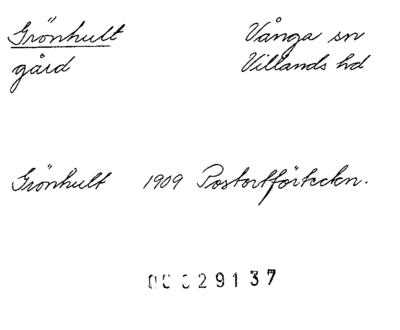 Grönhult Vånga sn
gård Villands hd
Grönhult 1909 Postortförteckn.
00029137